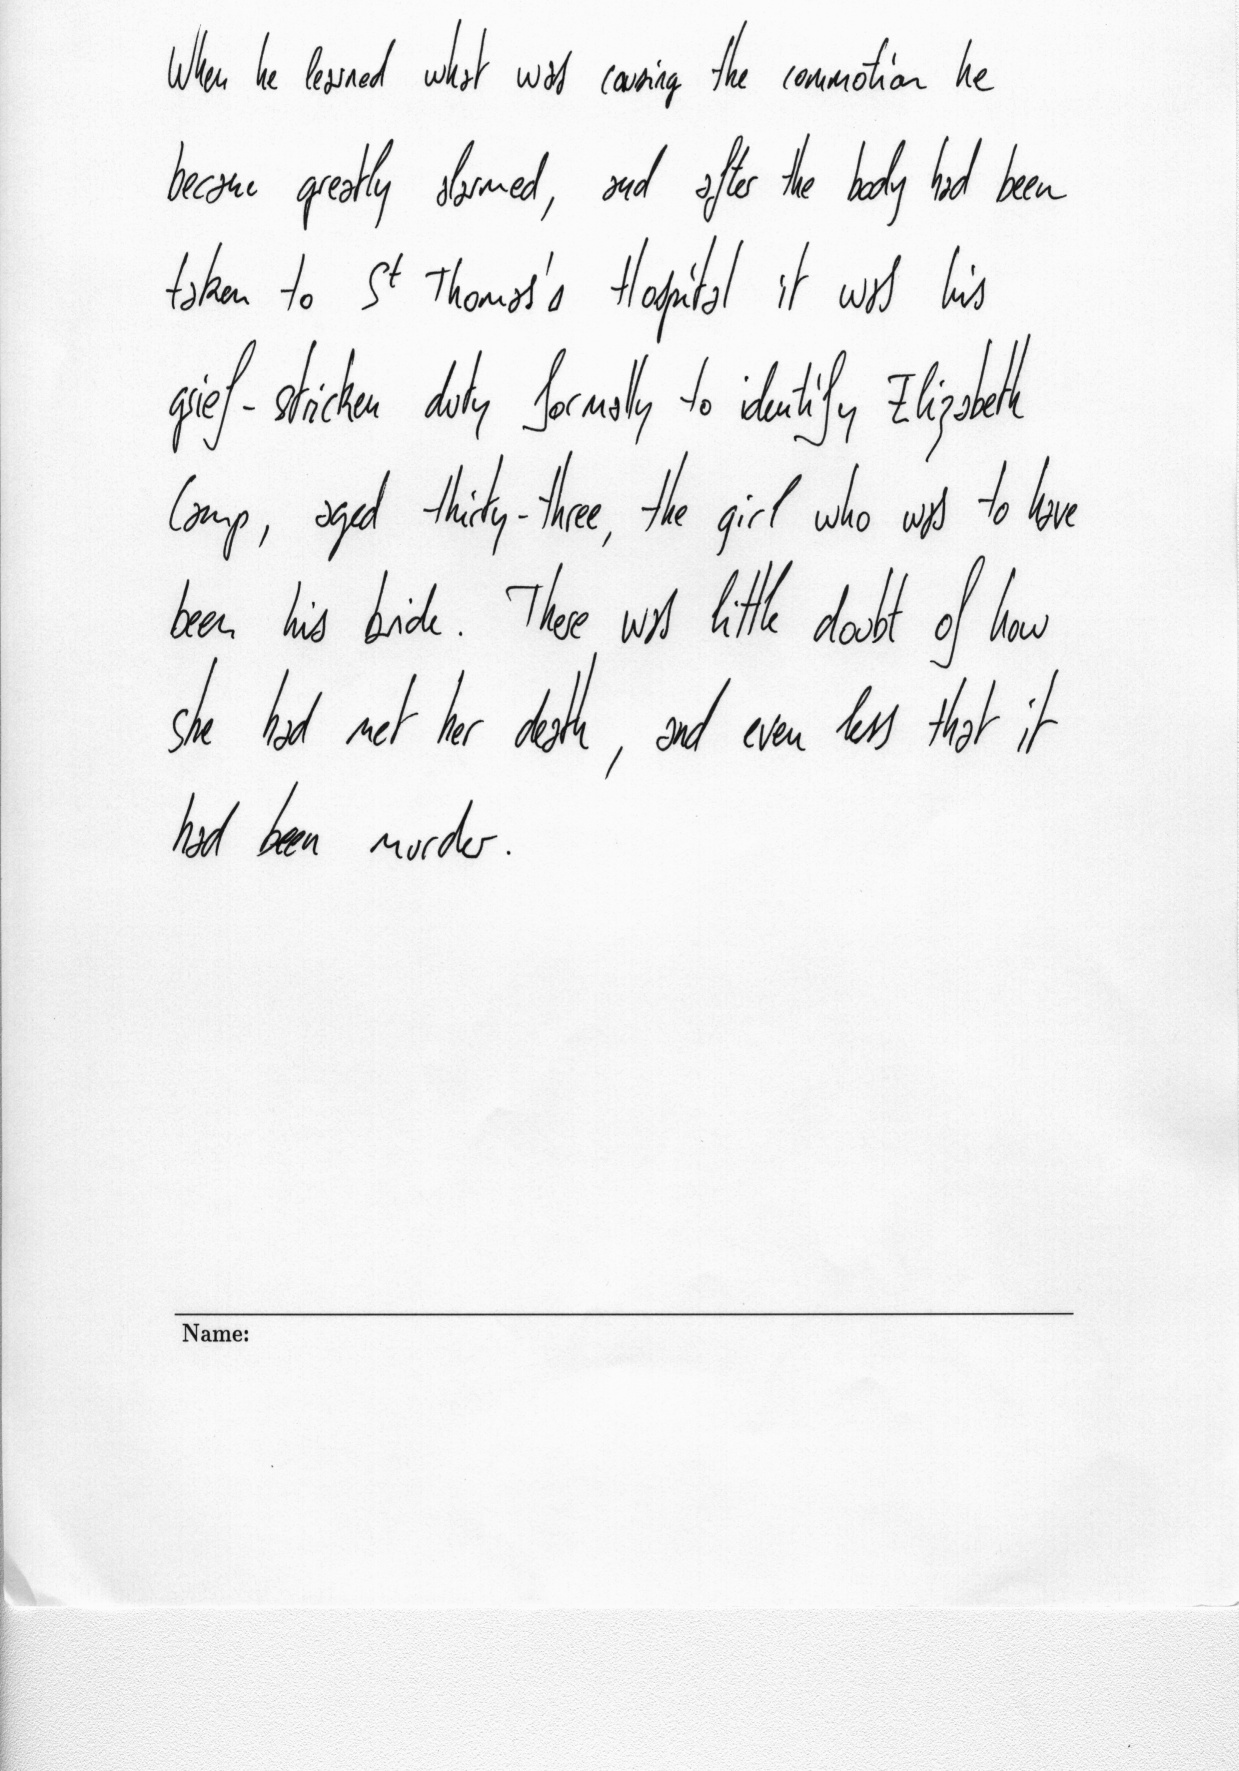 When he learned what was causing the commotion he
became greatly alarmed, and after the body had been
taken to St Thomas's Hospital it was his
grief-stricken duty formally to identify Elizabeth
Camp, aged thirty-three, the girl who was to have
been his bride. There was little doubt of how
she had met her death, and even less that it
had been murder.
Name: